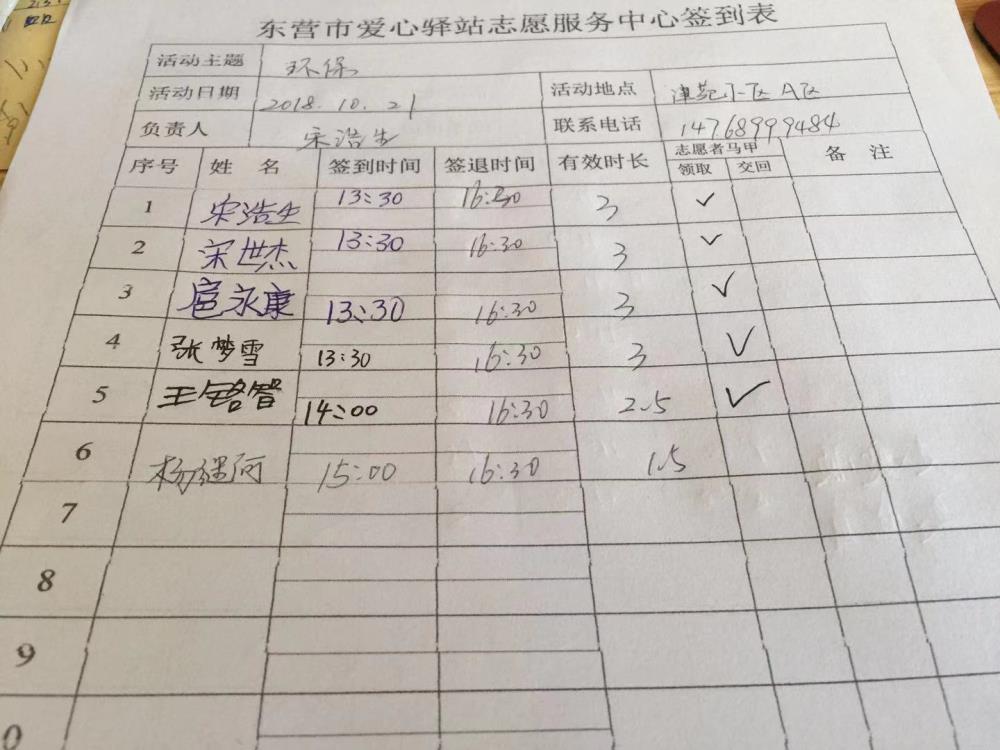 东营市爱心驿站志愿服务中心签到表
活动主题 环保
活动日期 2018.10.21 活动地点 津苑小区A区
负责人 宋浩生 联系电话 14768999484
序号 姓名 签到时间 签退时间 有效时长 志愿者马甲 备注
领取 交回
1 宋浩生 13:30 16:30 3 ✓
2 宋世杰 13:30 16:30 3 ✓
3 扈永康 13:30 16:30 3 ✓
4 张梦雪 13:30 16:30 3 ✓
5 王铭智 14:00 16:30 2.5 ✓
6 杨继 15:00 16:30 1.5
7
8
9
0